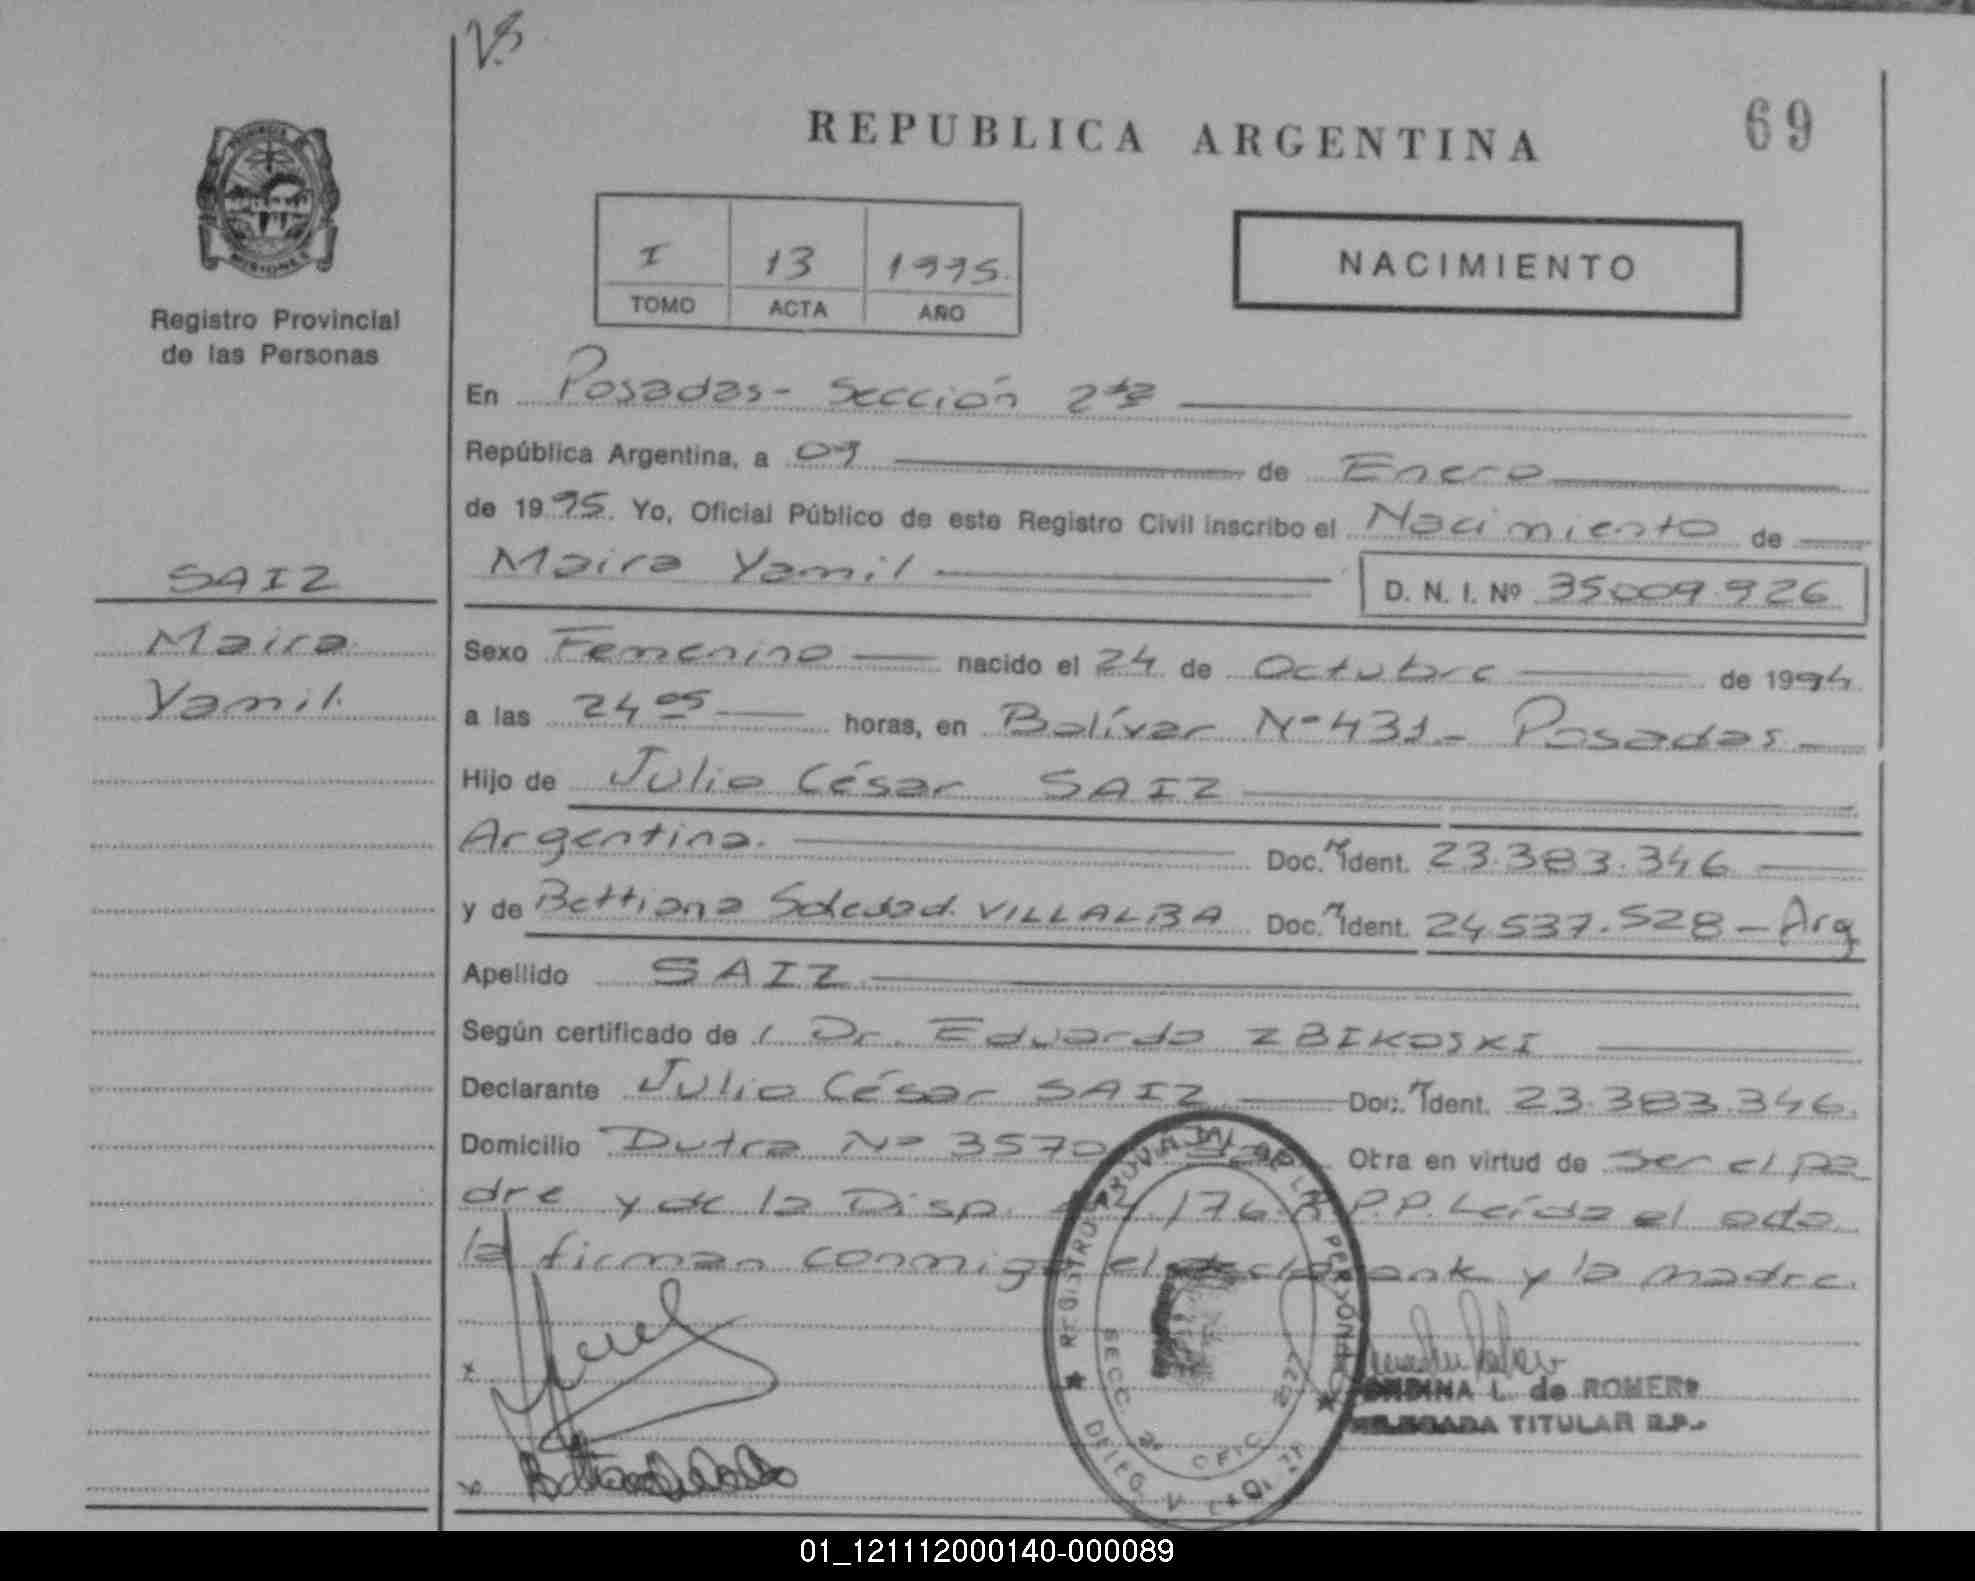 VB
REPUBLICA ARGENTINA
69
MISIONES
I 13 1995.
TOMO ACTA AÑO
NACIMIENTO
Registro Provincial
de las Personas
En Posadas- Sección 2da
República Argentina, a 09 de Enero
de 1995. Yo, Oficial Público de este Registro Civil inscribo el Nacimiento de
Maira Yamil D. N. I. Nº 35.009.926
SAIZ
Maira
Yamil.
Sexo Femenino nacido el 24 de Octubre de 1994
a las 24 05 horas, en Bolívar Nº 431- Posadas
Hijo de Julio César SAIZ
Argentina. Doc. Ident. 23.383.346
y de Bettiana Soledad VILLALBA Doc. Ident. 24.537.528 - Arg
Apellido SAIZ
Según certificado de / Dr. Eduardo ZBIKOSKI
Declarante Julio César SAIZ Doc. Ident. 23.383.346.
Domicilio Dutra Nº 3570 Obra en virtud de ser el pa
dre y de la Disp. /76. R.P.P. Leída el acta
la firman conmigo el declarante y la madre.
REGISTRO PROVINCIAL DE LAS PERSONAS
SECC. 2º OFIC.
x
L. de ROMERO
DELEGADA TITULAR R.P.
x
01_121112000140-000089